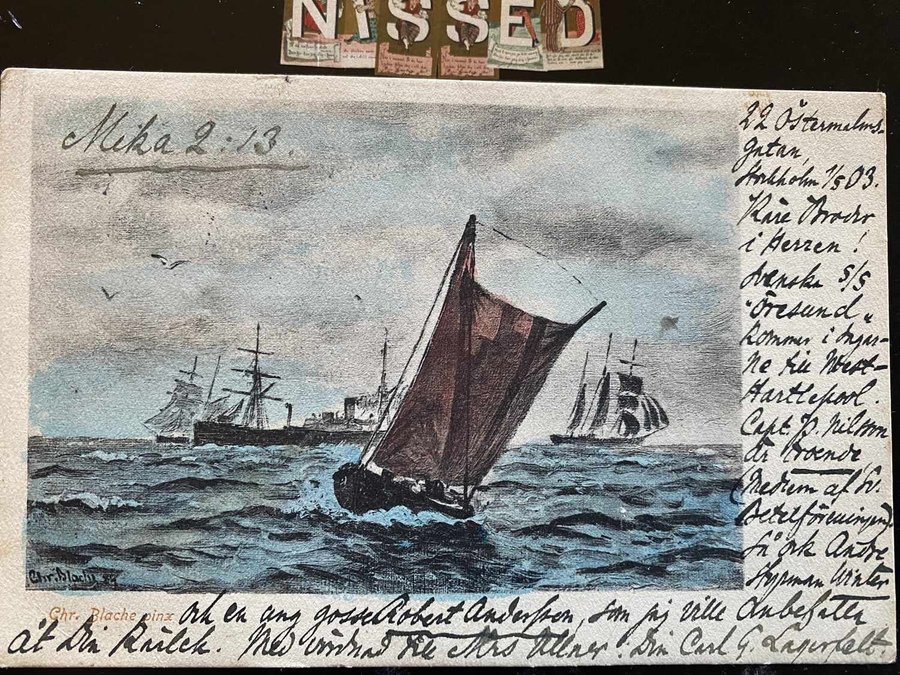 NISSED
Mika 2:13.
22 Östermalms-
gatan,
Stockholm 1/5 03.
Käre Broder
i Herren!
Svenska S/S
"Öresund"
kommer i dagar-
ne till West-
Hartlepool.
Capt. P. Nilsson
är troende
(Medlem af Sv.
Betelföreningen).
Så ock Andre
Styrman Winter
Chr. Blache 89
Chr. Blache pinx
och en ung gosse Robert Andersson, som jag ville anbefalla
åt Din . Med vördnad till Mrs Ullner. Din Carl G. Lagerfelt.